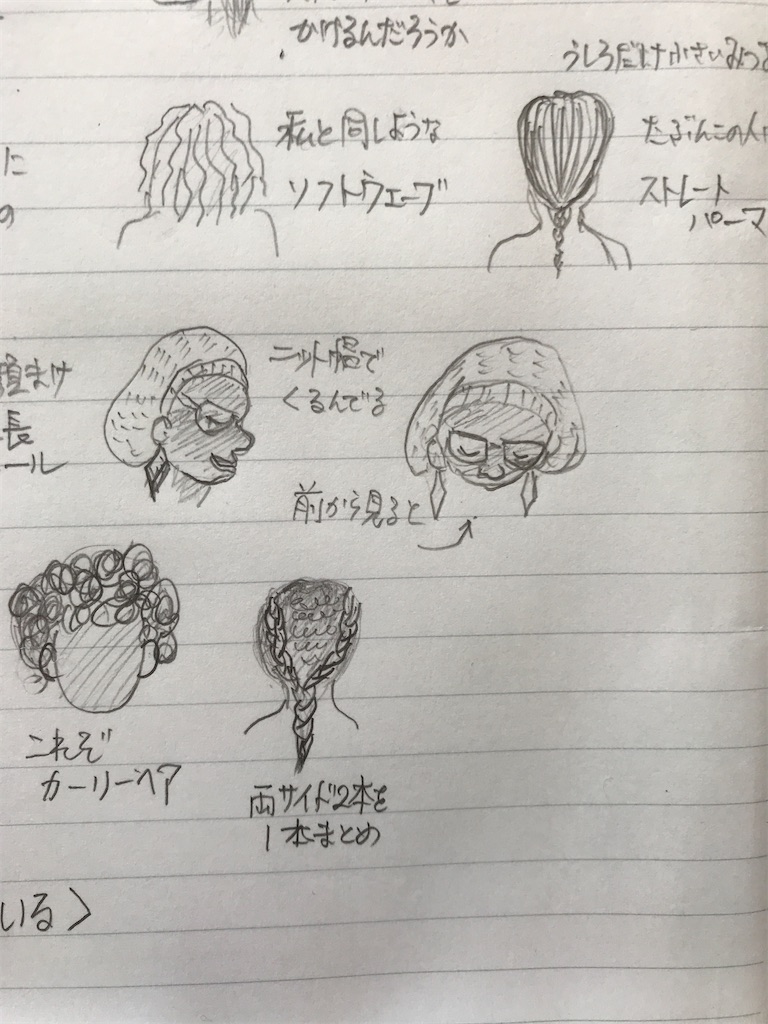 かけるんだろうか
うしろだけ
に
の
私と同じような
ソフトウェーブ
たぶんこの人
ストレート
パーマ
まけ
長
ール
ニット帽で
くるんでる
前から見ると
これぞ
カーリーヘア
両サイド2本を
1本まとめ
いる＞